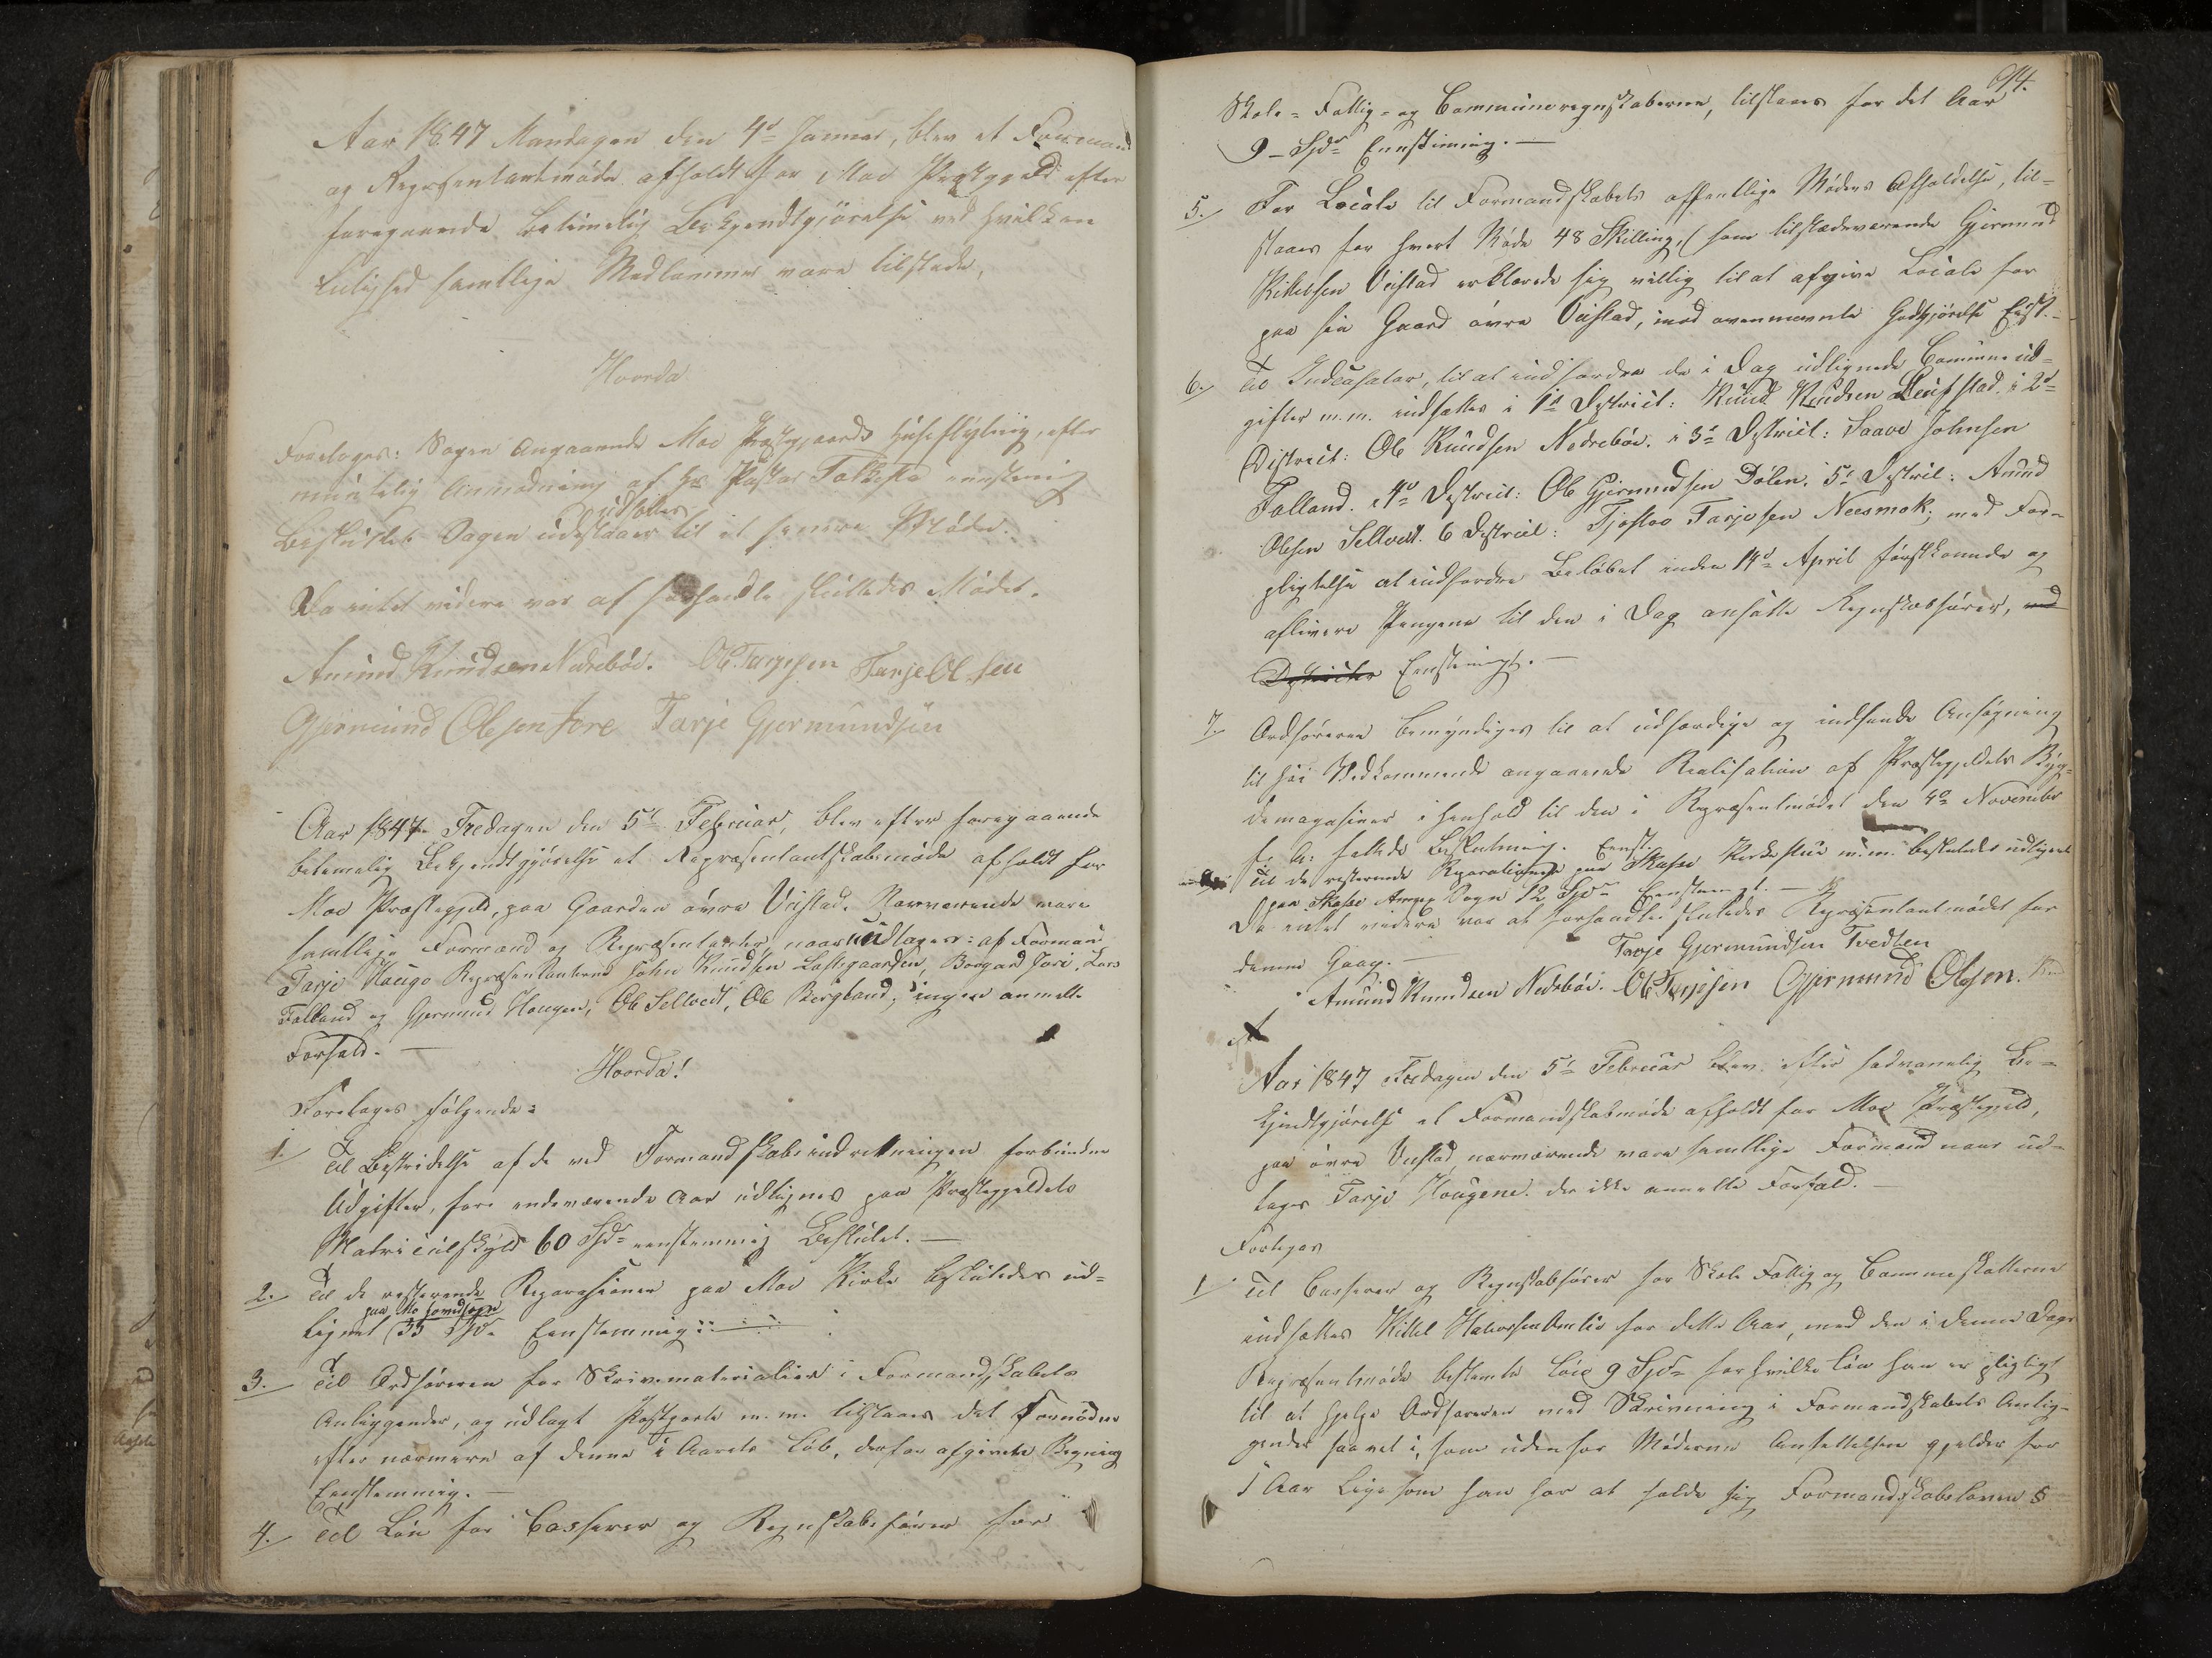 Aar 1847 Mandagen den 4d Januar, blev et Formand
og Repræsentantmøde afholdt for Moe Præstegjeld efter
foregaaende betimelig Bekjendtgjørelse ved hvilken
Leilighed samtlige Medlemmer vare tilstede,
Hvorda
Foretoges: Sagen angaaende Moe Præstegaards Huseflytning, efter
mundtelig Anmodning af Hr Pastor eenstemig
udsættes
Besluttet Sagen udestaaer til et senere Møde.
Da intet videre var at forhandle sluttedes Mødet.
Amund Knudsen Nedrebøe. Ole Tarjesen Tarje Olsen
Gjermund Olsen Jore Tarje Gjermundsen
Aar 1847 Fredagen den 5te Februar, blev efter foregaaende
betimelig Bekjendtgjørelse et Repræsentantskabsmøde afholdt for
Moe Præstegjeld, paa Gaarden øvre Veistad. Nærværende vare
samtlige Formænd og Repræsentanter, naar undtages: af Formænd
Tarje Haugo Repræsentanterne John Knudsen Loftsgaarden, Jore, Lars
Falland og Gjermund Haugen, Ole Sellvedt, Ole Bergland; ingen anmelte
Forfald. —
Hvorda!
Foretoges følgende:
1. Til Bestridelse af de ved Formandskabsindretningen forbundne
Udgifter, for indeværende Aar udlignes paa Præstegjeldets
Matriculskyld 60 Spd eenstemmig Besluttet. —
2. Til de resterende Reparasioner paa Moe Kirke besluttedes ud-
paa Mo hovedsogn
lignet 35 Spd. Eenstemmig: —
3. Til Ordføreren for Skrivematerialier i Formandskabets
Anliggender, og udlagt Postporto m. m. tilstaaes det Fornødne
efter nærmere af denne i Aarets Løb, derfor afgivende Regning
Eenstemmig. —
4. Til Løn for Casserer og Regnskabsfører for
94.
Skole- Fattig- og Communeregnskaberne, tilstaaes for det Aar
9 – Spdr Eenstimig. —
5. For Locale til Formandskabets offentlige Møders Afholdelse, til-
staaes for hvert Møde 48 Skilling, (som tilstædeværende Gjermund
Kittelsen Veistad erklærede sig villig til at afgive Locale for
paa sin Gaard øvre Veistad, imod ovennævnte Godtgjørelse Eenst. –
6. Til Indcasator, til at indfordre de i Dag udlignede Commune ud-
gifter m.m. indsættes i 1st District: Knud Knudsen i 2d
District: Ole Knudsen Nedrebøe. i 3d District: Saave Johnsen
Falland. 4d District: Ole Gjermundsen Dølen. 5t District: Amund
Olsen Sellvedt. 6 District: Tjostov Tarjesen Neesmok; med For-
pligtelse at indfordre Beløbet inden 14d April førstkomende og
aflevere Pengene til den i Dag ansatte Regnskabsfører, ved
Districter Eenstemigt. —
7. Ordføreren bemyndiges til at udfærdige og indsende Ansøgning
til høi Vedkommende angaaende Realisation af Præstegjeldets Byg-
demagasiner i henhold til den i Repræsentmødet den 4d November
f. A. fattede Beslutning. Eenst.
Til de resterende Reparationer paa Skafse Kirke m.m. besluttedes udlignet
paa Skafse Annex Sogn 12 Spd Eenstemigt. —
Da intet videre var at forhandle sluttedes Repræsentantmødet for
denne Gang. — Tarje Gjermundsen Tvedten
Amund Knudsen Nedrebøe. Ole Tarjesen Gjermund Olsen.
Aar 1847 Fredagen den 5t Februar blev efter sædvanelig Be-
kjendtgjørelse et Formandskabmøde afholdt for Moe Præstegjeld,
paa øvre Veistad nærværende vare samtlige Formænd naar und-
tages Tarje Haugene der ikke anmelte Forfald. —
Foretoges
1 Til Casserer og Regnskabsfører for Skole Fattig og Communeskatterne
indsættes Kittel Halvorsen for dette Aar, med den i denne Dags
Repræsentmøde bestemte Løn 9 Spd for hvilke Løn han er pligtigt
til at hjelpe Ordføreren med Skrivning i Formandskabets Anlig-
gender saavel i, som udenfor Møderne Ansettelsen gjelder for
1 Aar Ligesom han har at holde sig Formandskabsloven §